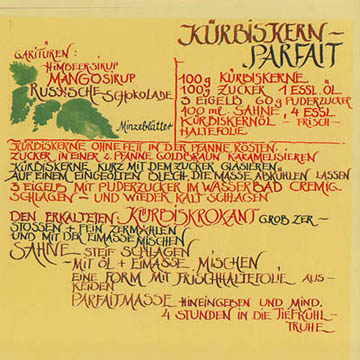 KÜRBISKERN-
PARFAIT
GARITUREN:
HIMBEERSIRUP
MANGOSIRUP
RUSSISCHE
SCHOKOLADE
Minzeblätter
100g KÜRBISKERNE
100g ZUCKER 1 ESSL. ÖL
3 EIGELB 60g PUDERZUCKER
400 ml SAHNE, 4 ESSL.
KÜRBISKERNÖL - FRISCH-
HALTEFOLIE
KÜRBISKERNE OHNE FEIT IN DER PFANNE RÖSTEN.
ZUCKER IN EINER 2. PFANNE GOLDBRAUN KARAMELISIEREN
KÜRBISKERNE KURZ MIT DEM ZUCKER GLASIEREN,
AUF EINEM EINGEÖLTEN BLECH DIE MASSE ABKÜHLEN LASSEN
3 EIGELB MIT PUDERZUCKER IM WASSERBAD CREMIG
SCHLAGEN - UND WIEDER KALT SCHLAGEN
DEN ERKALTETEN KÜRBISKROKANT GROB ZER-
STOSSEN + FEIN ZERMAHLEN
UND MIT DER EIMASSE MISCHEN
SAHNE - STEIF SCHLAGEN
- MIT ÖL + EIMASSE MISCHEN
EINE FORM MIT FRISCHHALTEFOLIE AUS-
KEIDEN
PARFAITMASSE HINEINGEBEN UND MIND.
4 STUNDEN IN DIE TIEFKÜHL-
TRUHE